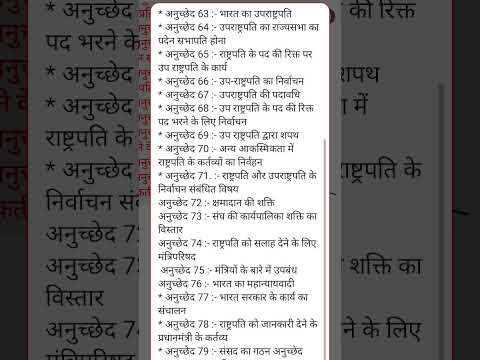 * अनुच्छेद 63 :- भारत का उपराष्ट्रपति
* अनुच्छेद 64 :- उपराष्ट्रपति का राज्यसभा का
पदेन सभापति होना
* अनुच्छेद 65 :- राष्ट्रपति के पद की रिक्त पर
उप राष्ट्रपति के कार्य
* अनुच्छेद 66 :- उप-राष्ट्रपति का निर्वाचन
* अनुच्छेद 67 :- उपराष्ट्रपति की पदावधि
* अनुच्छेद 68 :- उप राष्ट्रपति के पद की रिक्त
पद भरने के लिए निर्वाचन
* अनुच्छेद 69 :- उप राष्ट्रपति द्वारा शपथ
* अनुच्छेद 70 :- अन्य आकस्मिकता में
राष्ट्रपति के कर्तव्यों का निर्वहन
* अनुच्छेद 71. :- राष्ट्रपति और उपराष्ट्रपति के
निर्वाचन संबंधित विषय
अनुच्छेद 72 :- क्षमादान की शक्ति
अनुच्छेद 73 :- संघ की कार्यपालिका शक्ति का
विस्तार
अनुच्छेद 74 :- राष्ट्रपति को सलाह देने के लिए
मंत्रिपरिषद
अनुच्छेद 75 :- मंत्रियों के बारे में उपबंध
अनुच्छेद 76 :- भारत का महान्यायवादी
* अनुच्छेद 77 :- भारत सरकार के कार्य का
संचालन
* अनुच्छेद 78 :- राष्ट्रपति को जानकारी देने के
प्रधानमंत्री के कर्तव्य
* अनुच्छेद 79 :- संसद का गठन अनुच्छेद